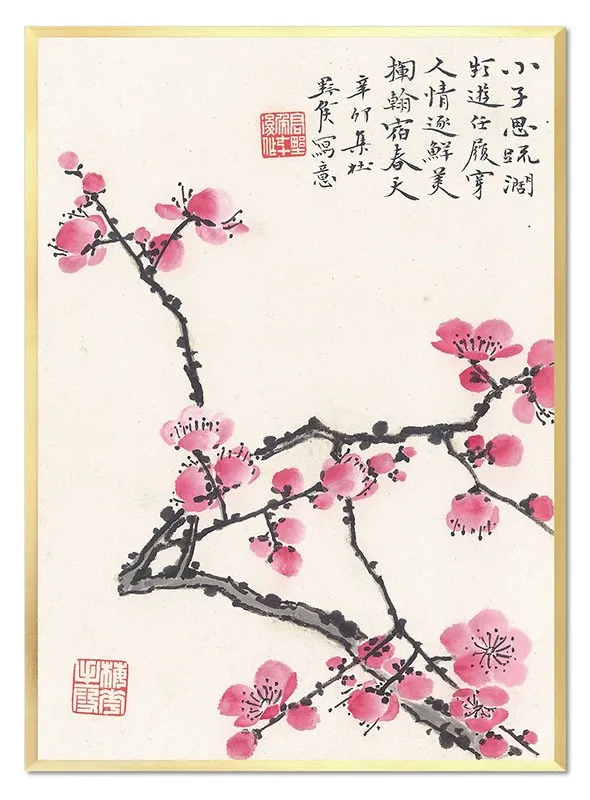 小子思疏濶
頻遊任履穿
人情逐鮮美
翰宿春天
辛卯集杜
野侯寫意